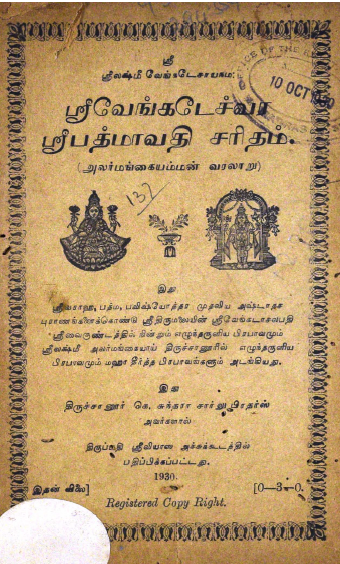 ஸ்ரீ
ஸ்ரீலஷ்மீ வேங்கடேசாய நம:
ஸ்ரீவேங்கடேச்வர
ஸ்ரீபத்மாவதி சரிதம்.
(அலர்மங்கையம்மன் வரலாறு)
OFFICE OF THE
10 OCT
137
இது
ஸ்ரீவராஹ, பத்ம, பவிஷ்யோத்தர முதலிய அஷ்டாதச
புராணங்களைக்கொண்டு ஸ்ரீதிருமலையின் ஸ்ரீவேங்கடாசலபதி
ஸ்ரீவைகுண்டத்தில் நின்றும் எழுந்தருளிய பிரபாவமும்
ஸ்ரீலஷ்மீ அலர்மங்கையாய் திருச்சானூரில் எழுந்தருளிய
பிரபாவமும் மஹா தீர்த்த பிரபாவங்களும் அடங்கியது.
இது
திருச்சானூர் கெ. சுந்தரா சார்லு பிரதர்ஸ்
அவர்களால்
திருப்பதி ஸ்ரீவியாஸ அச்சுக்கூடத்தில்
பதிப்பிக்கப்பட்டது.
1930.
இதன் விலை] [0—3—0.
Registered Copy Right.